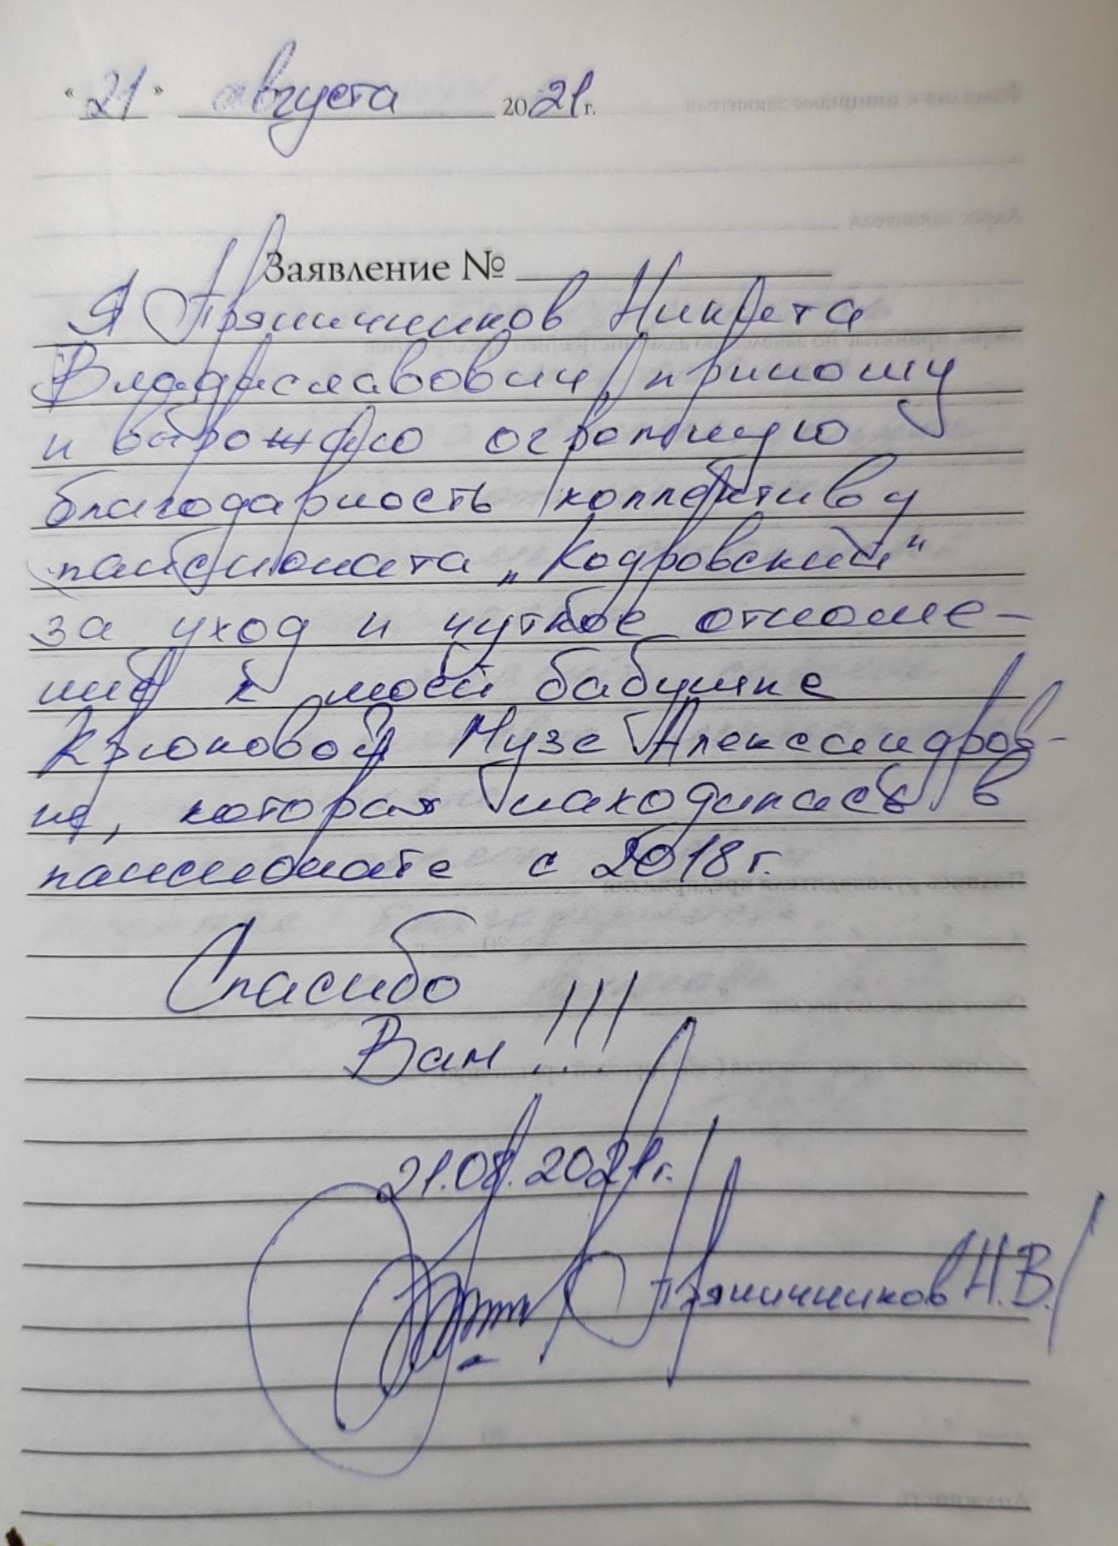 "21" августа 2021 г.
Заявление №
Я Пряничников Никита
Владиславович, приношу
и выражаю огромную
благодарность коллективу
пансионата „Кодровский"
за уход и чуткое отноше-
ние к моей бабушке
Крюковой Музе Александров-
не, которая находилась в
пансионате с 2018 г.
Спасибо
Вам!!!
21.08.2021г.
/Пряничников Н.В./